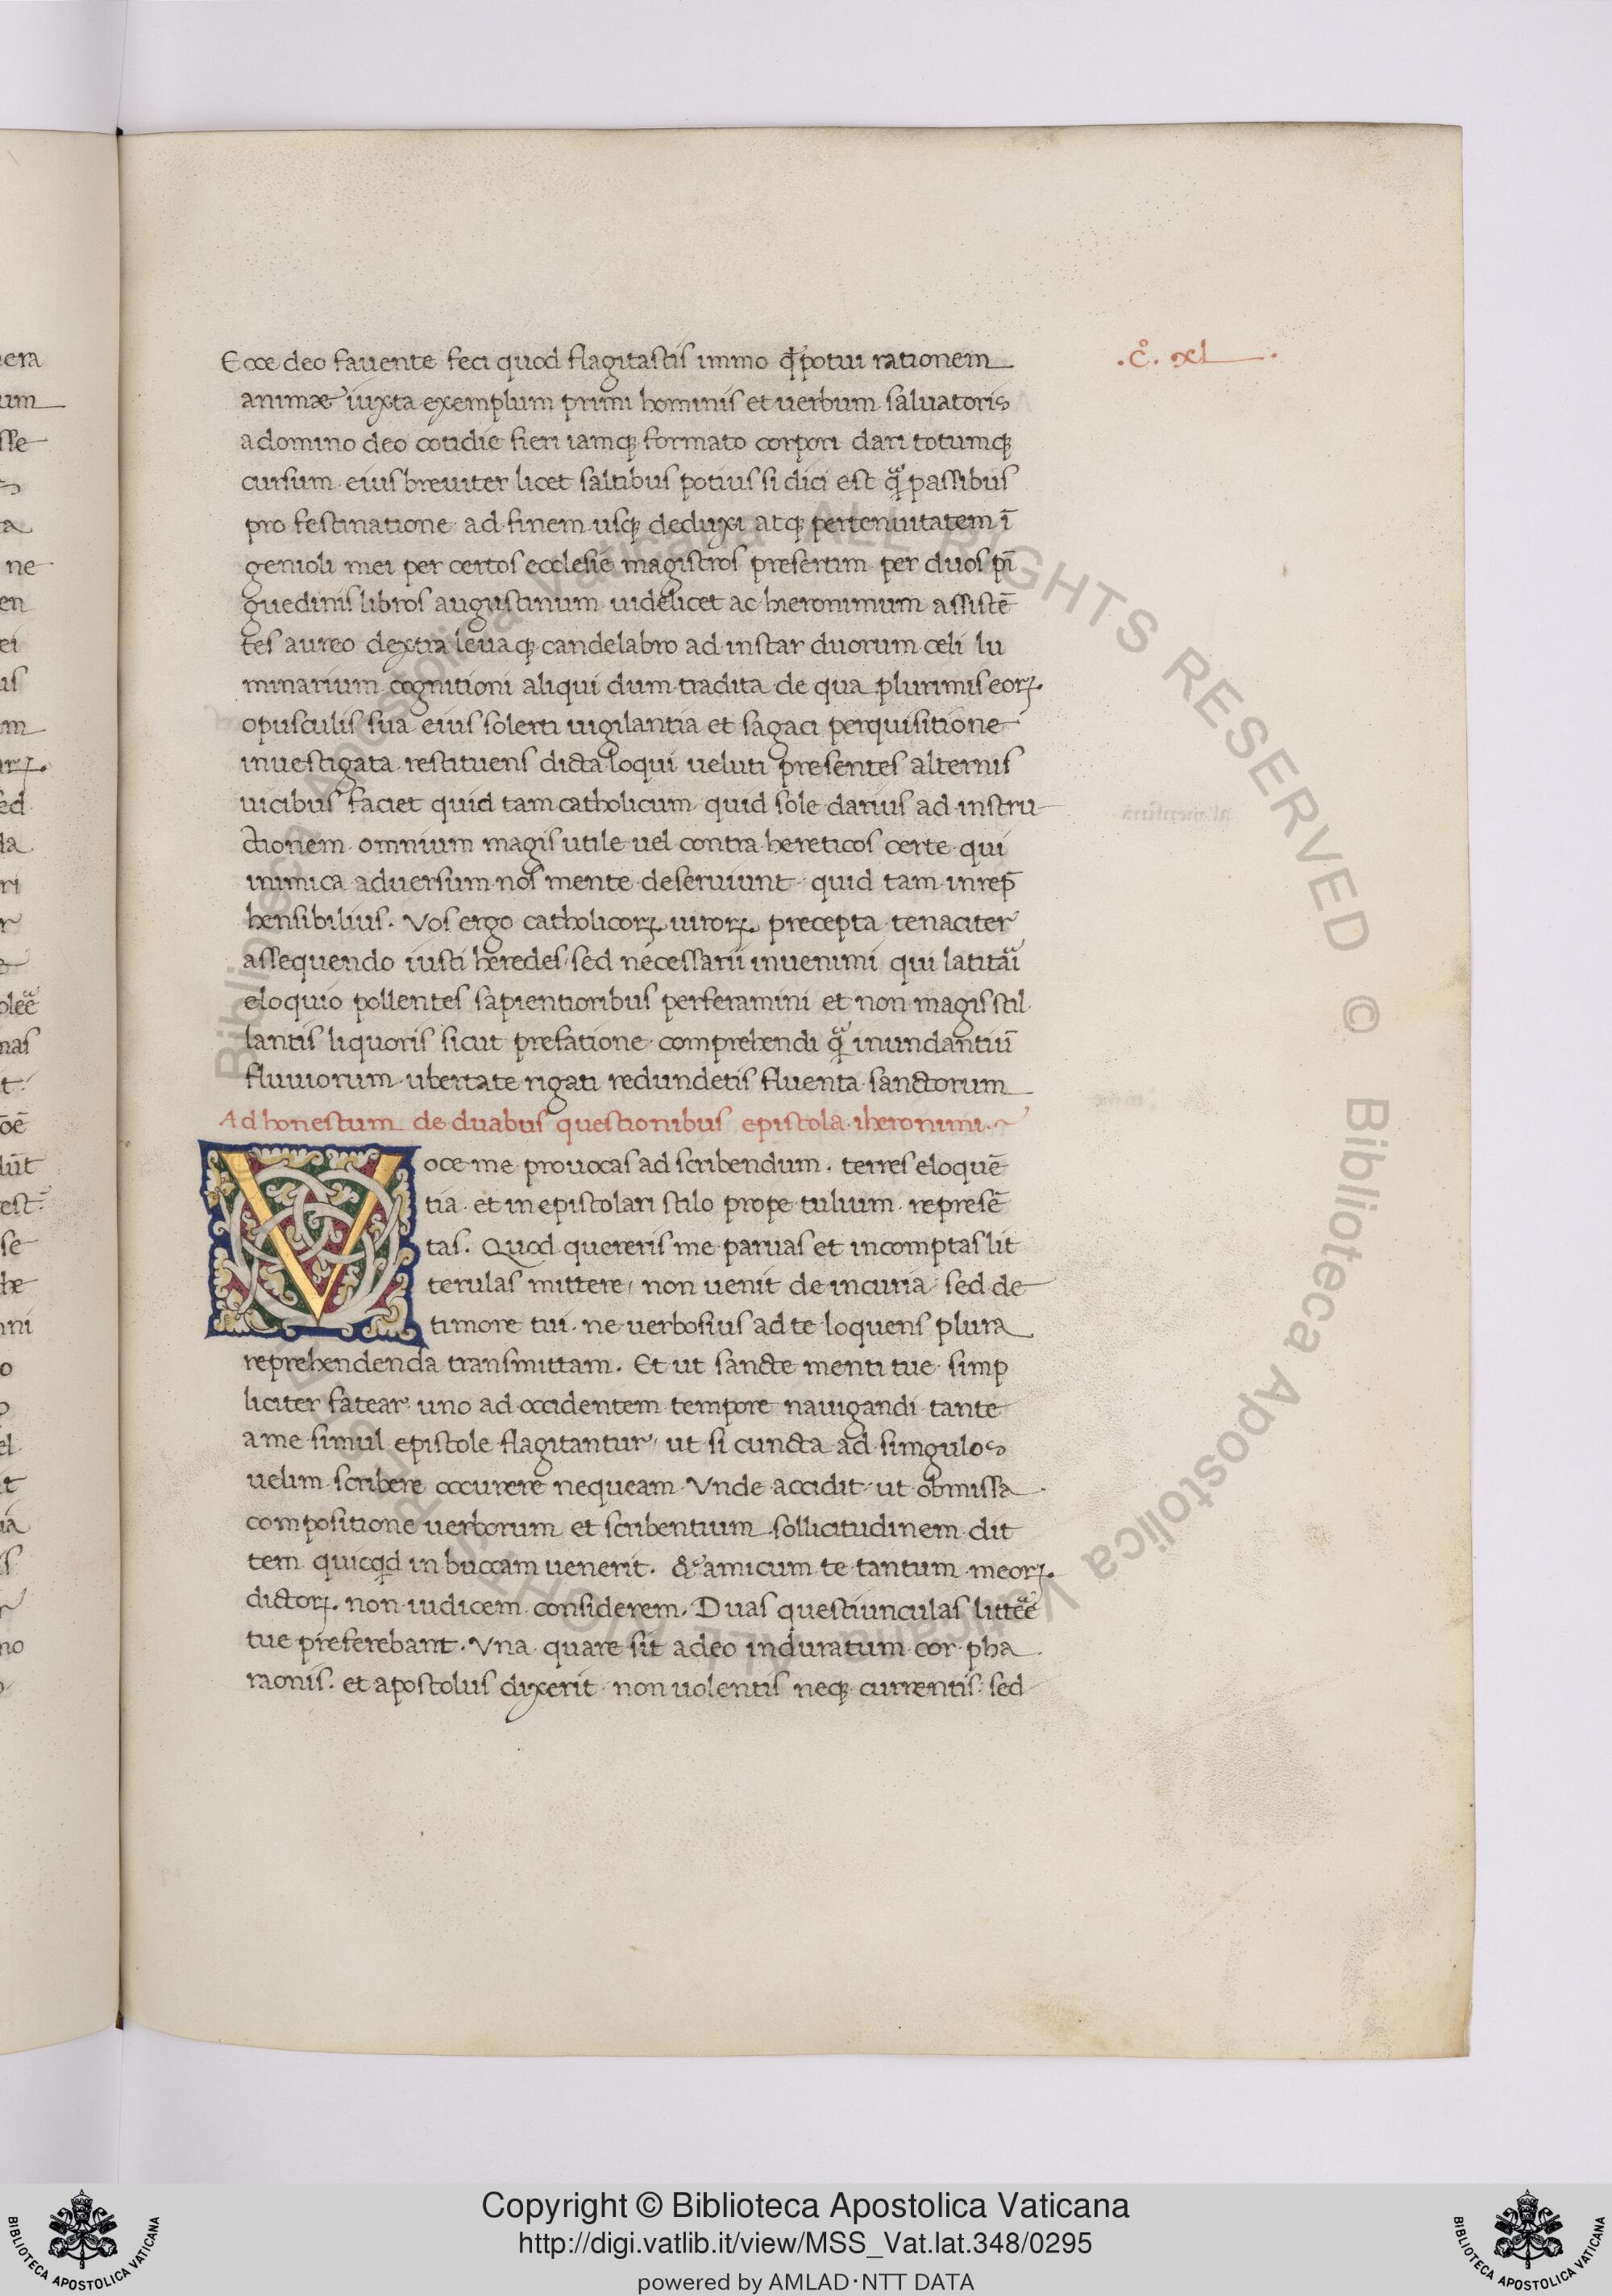 Ecce deo fauente feci quod flagitastis immo qđ potui rationem
.c̊. xl.
animæ iuxta exemplum primi hominis et uerbum saluatoris
adomino deo cotidie fieri iamqꝫ formato corpori dari totumqꝫ
cursum eius breuiter licet saltibus potius si dici est qᷓ passibus
pro festinatione ad finem usqꝫ deduxi atqꝫ pertenuitatem ī
genioli mei per certos ecclesie magistros presertim per duos pī
guedinis libros augustinum uidelicet ac hieronimum assistē
tes aureo dextra leuaqꝫ candelabro ad instar duorum celi lu
minarium cognitioni aliqui dum tradita de qua plurimis eoꝝ
opusculis sua eius solerti uigilantia et sagaci perquisitione
inuestigata restituens dicta loqui ueluti presentes alternis
uicibus faciet quid tam catholicum quid sole darius ad instru
ctionem omnium magis utile uel contra hereticos certe qui
inimica aduersum nos mente deseruiunt quid tam inrep̄
hensibilius. Vos ergo catholicoꝝ uiroꝝ precepta tenaciter
assequendo iusti heredes sed necessarii inuenimi qui
eloquio pollentes sapientioribus perferamini et non magis stil
lantis liquoris sicut prefatione comprehendi qᷓ inundantiū
fluuiorum ubertate rigati redundetis fluenta sanctorum
Ad honestum de duabus questionibus epistola iheronimi.
Voce me prouocas ad scribendum. terres eloquē
tia et in epistolari stilo prope tulium represē
tas. Quod quereris me paruas et incomptas lit
terulas mittere, non uenit de incuria sed de
timore tui. ne uerbosius ad te loquens plura
reprehendenda transmittam. Et ut sancte menti tue simp
liciter fatear uno ad occidentem tempore nauigandi tante
ame simul epistole flagitantur, ut si cuncta ad simgulos
uelim scribere occurere nequeam Vnde accidit ut obmissa
compositione uerborum et scribentium sollicitudinem dit
tem quicqd in buccam uenerit. amicum te tantum meoꝝ
dictoꝝ non iudicem considerem. Duas questiunculas litteᷓe
tue preferebant. Vna quare sit adeo induratum cor pha
raonis. et apostolus dixerit non uolentis neqꝫ currentis sed
Copyright © Biblioteca Apostolica Vaticana
http://digi.vatlib.it/view/MSS_Vat.lat.348/0295
powered by AMLAD·NTT DATA